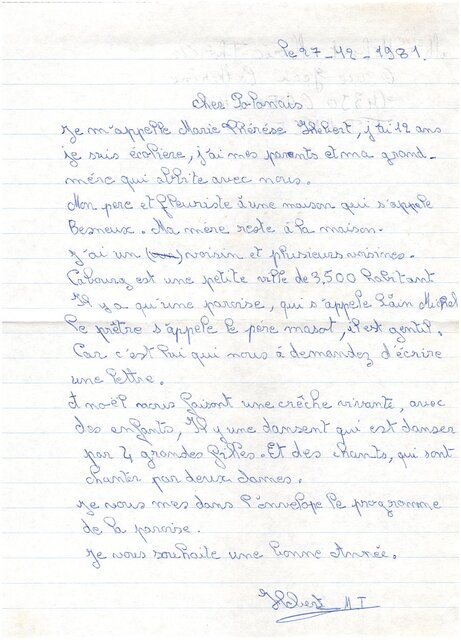 le 27-12-1981.
Cher Polonais
Je m'appelle Marie Thérése Hebert, j'ai 12 ans
je suis écolière, j'ai mes parents et ma grand-
mére qui abite avec nous.
Mon pere et fleuriste à une maison qui s'appele
Besneux. Ma mère reste à la maison.
J'ai un voisin et plusieurs voisines.
Cabourg est une petite ville de 3,500 habitant
Il y a qu'une paroise, qui s'appele Sain Michel
Le prêtre s'appele le pere masot, il est gentil.
Car c'est lui qui nous à demandez d'écrire
une lettre.
A noël nous faisont une crêche vivante, avec
des enfants, Il y une dansent qui est danser
par 4 grandes filles. Et des chants, qui sont
chanter par deux dames.
Je vous mes dans l'envelope le programme
de la paroise.
Je vous souhaite une bonne Année.
Hebert M T